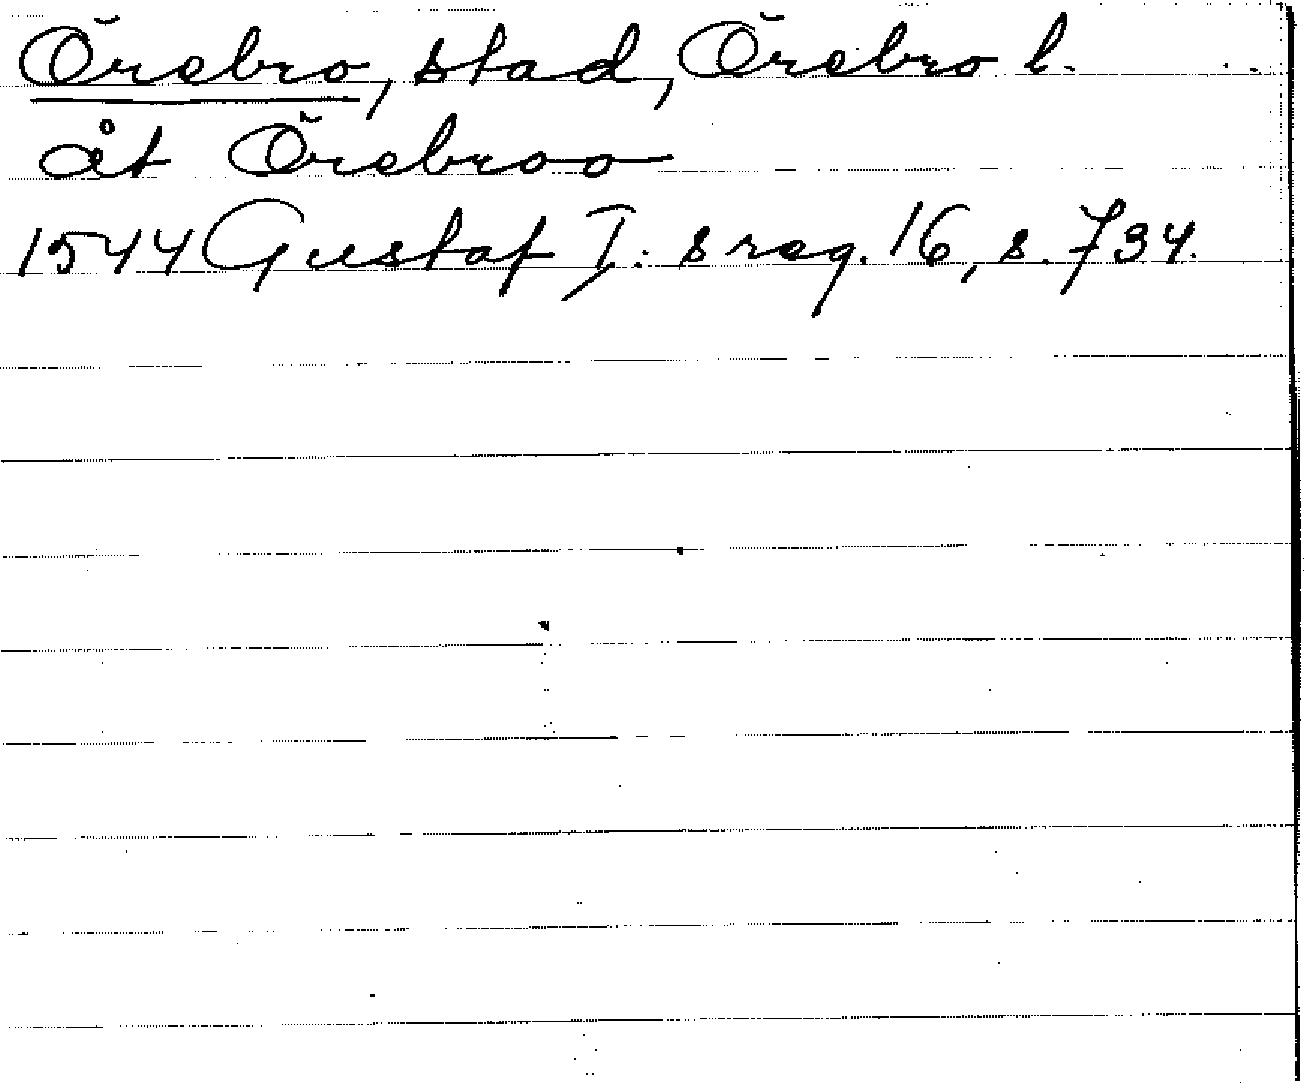 Örebro, stad, Örebro l.
åt Örebroo
1544 Gustaf I:s reg. 16, s. 734.